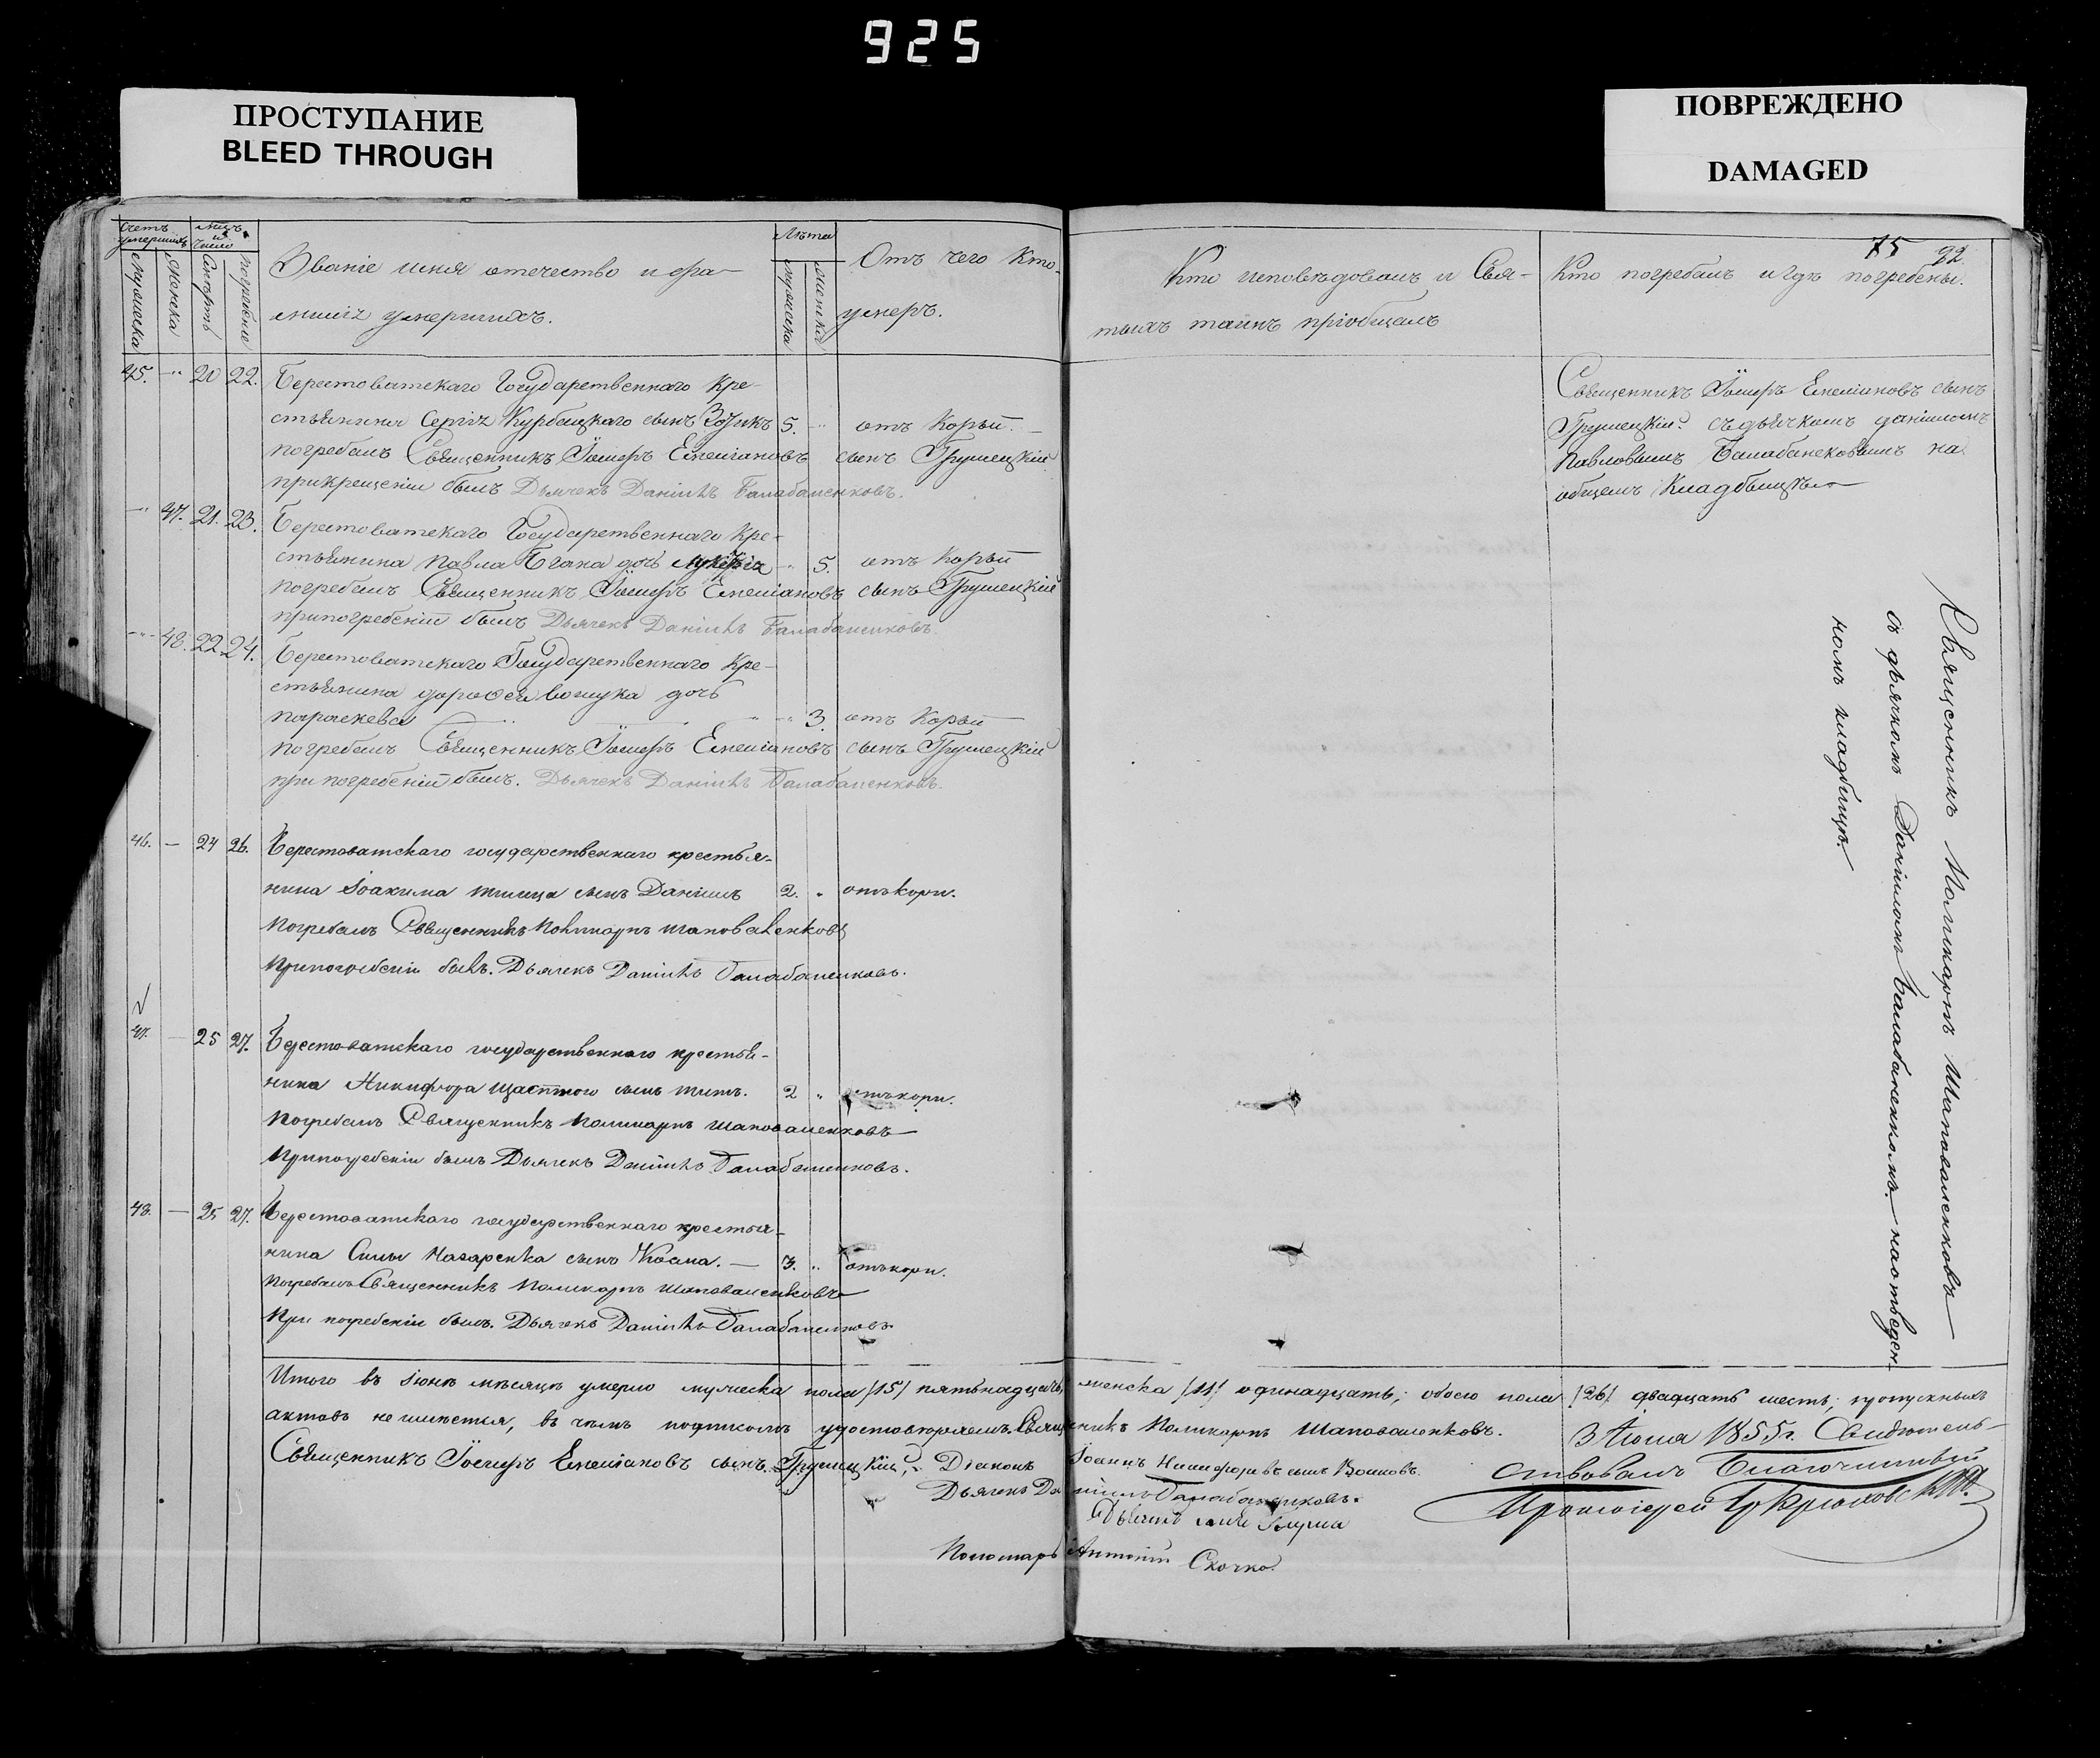 925
ПРОСТУПАНИЕ
BLEED THROUGH
ПОВРЕЖДЕНО
DAMAGED
75 92.
Счетъ умершихъ
Мѣсъ и число
Мужеска
Женска
Смерть
Погребение
Званіе имя отечество и фа-
миліи умершихъ.
Лѣта
Мужеска
Женска
Отъ чего кто
умеръ.
Кто исповѣдовалъ и Свя-
тыхъ таинъ пріобщалъ
Кто погребалъ и гдѣ погребены.
45. " 20 22. Берестоватскаго Государственнаго кре-
стьянина Сергія Курбацкаго сынъ 5. " отъ Кори.
погребалъ Священникъ Іосифъ Емеліановъ сынъ Грушецкій
прикрещеніи былъ Дьячекъ Даніилъ Балабаненковъ.
Священникъ Іосифъ Емеліановъ сынъ
Грушецкій съ дьячкомъ Даніиломъ
Павловымъ Балабанековымъ на
общемъ Кладбищѣ
" 47. 21. 23. Берестоватскаго Государственнаго Кре-
стьянина Павла Бгана дочь " 5. отъ Кори
погребалъ Священникъ Іосифъ Емеліановъ сынъ Грушецкій
припогребеніи былъ Дьячекъ Даніилъ Балабаненковъ.
" 48. 22 24. Берестоватскаго Государственнаго Кре-
стьянина дорофея дочь
параскева " 3. отъ Кори
погребалъ Священникъ Іосифъ Емеліановъ сынъ Грушецкій
при погребеніи былъ. Дьячекъ Даніилъ Балабаненковъ.
46. — 24 26. Берестоватскаго государственнаго крестья-
нина Іоакима сынъ Даніилъ 2. " отъ кори.
Погребалъ Священникъ Поликарпъ Шаповаленковъ
При погребеніи былъ. Дьячекъ Даніилъ Балабаненковъ.
47. — 25 27. Берестоватскаго государственнаго крестья-
нина Никифора Щастного сынъ Титъ. 2 " отъ кори.
Погребалъ Священникъ Поликарпъ Шаповаленковъ
При погребеніи былъ Дьячекъ Даніилъ Балабаненковъ.
48. — 25 27. Берестоватскаго государственнаго крестья-
нина Силы Назаренка сынъ Косма. — 3. " отъ кори.
Погребалъ Священникъ Поликарпъ Шаповаленковъ
При погребеніи былъ. Дьячекъ Даніилъ Балабаненковъ
Священникъ Поликарпъ Шаповаленковъ
съ дьячкомъ Даніиломъ Балабаненкомъ. на отведен-
номъ кладбищѣ.
Итого въ Іюнѣ мѣсяцѣ умерло мужеска пола /15/ пятьнадцать, женска /11/ одинадцать; обоего пола /26/ двадцать шесть; пропускныхъ
актовъ не имѣется, въ чемъ подписомъ удостовѣряемъ. Священникъ Поликарпъ Шаповаленковъ.
Священникъ Іосифъ Емеліановъ сынъ Грушецкій, Діаконъ Іоаннъ Никифоровъ сынъ Волковъ.
Дьячекъ Даніилъ Балабаненковъ.
Дьячекъ
Пономарь Антоній Скочко.
3 Іюля 1855г. Свидѣтель-
ствовалъ Благочинный
Протоіерей Гр Крыжовскій